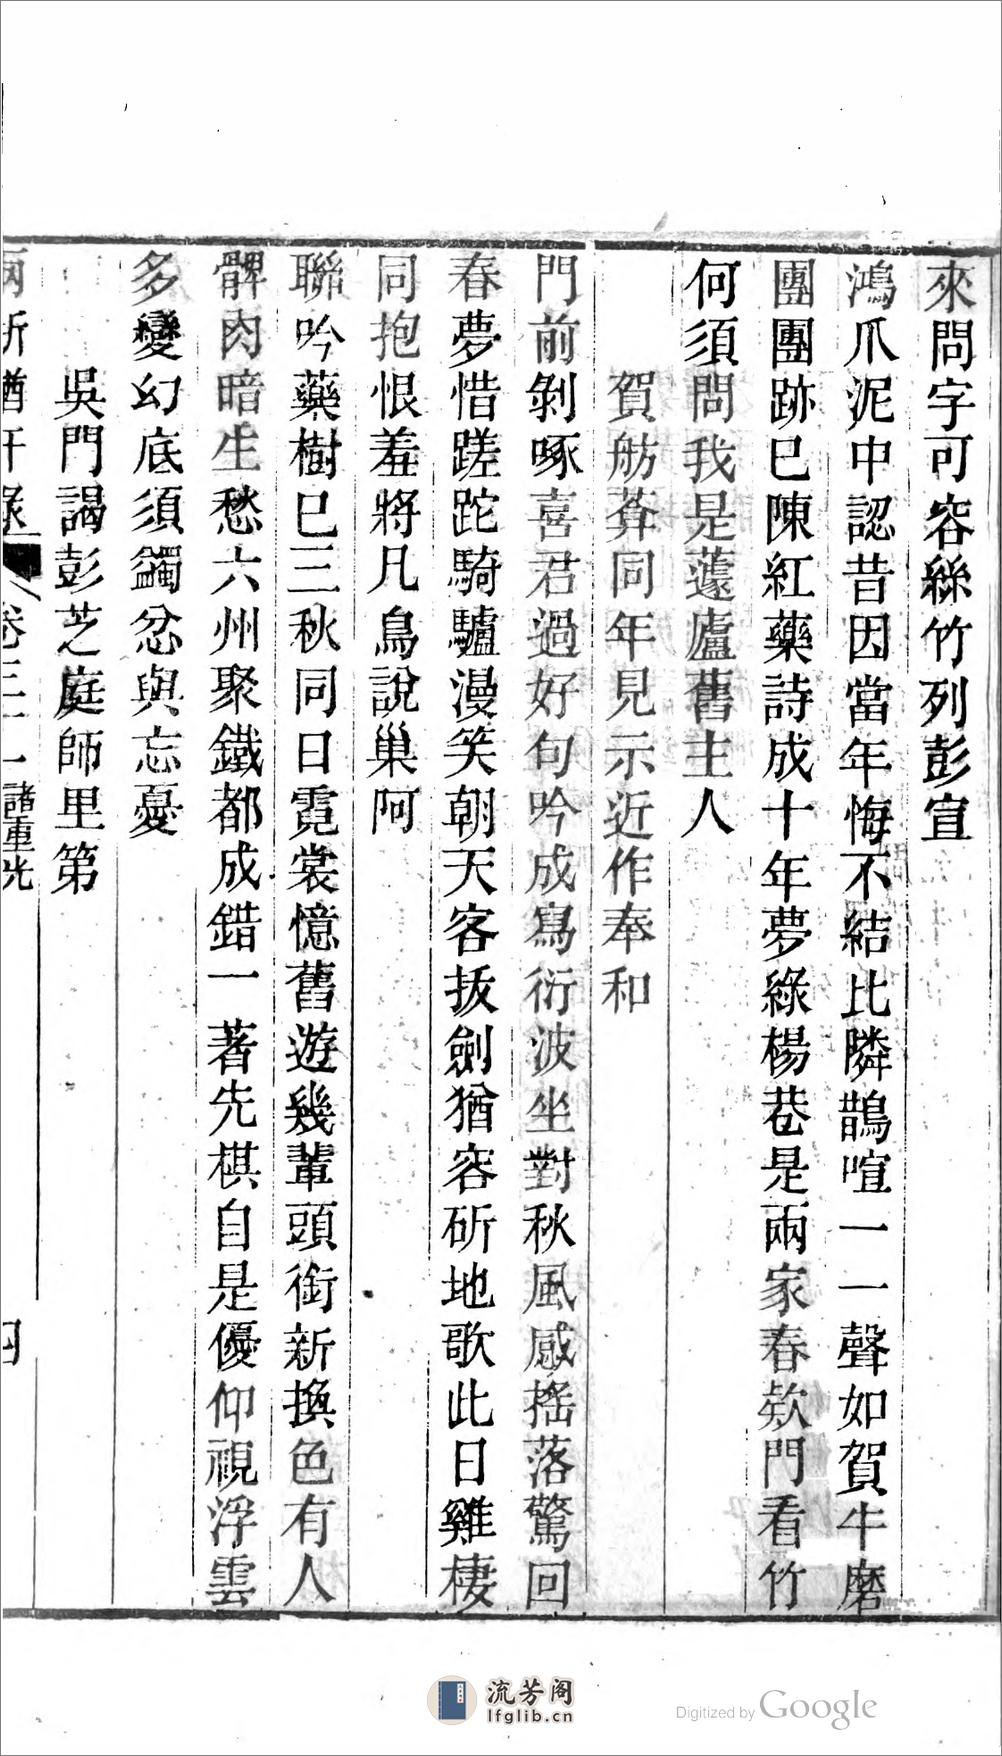 來問字可容絲竹列彭宣
鴻爪泥中認昔因當年悔不結比隣鵲喧一一聲如賀牛磨
團團跡巳陳紅藥詩成十年夢綠楊巷是兩家春欵門看竹
何須問我是蘧廬舊主人
賀舫葊同年見示近作奉和
門前剝啄喜君過好句吟成寫衍波坐對秋風感搖落驚回
春夢惜蹉跎騎驢漫笑朝天客拔劍猶容斫地歌此日雞棲
同抱恨羞將凡鳥說巢阿
聯吟藥樹巳三秋同日霓裳憶舊遊幾輩頭銜新換色有人
髀肉暗生愁六州聚鐵都成錯一著先棋自是優仰視浮雲
多變幻底須蠲忿與忘憂
吳門謁彭芝庭師里第
兩浙輶軒錄 卷三十一 諸重光 四
流芳阁
lfglib.cn
Digitized by Google